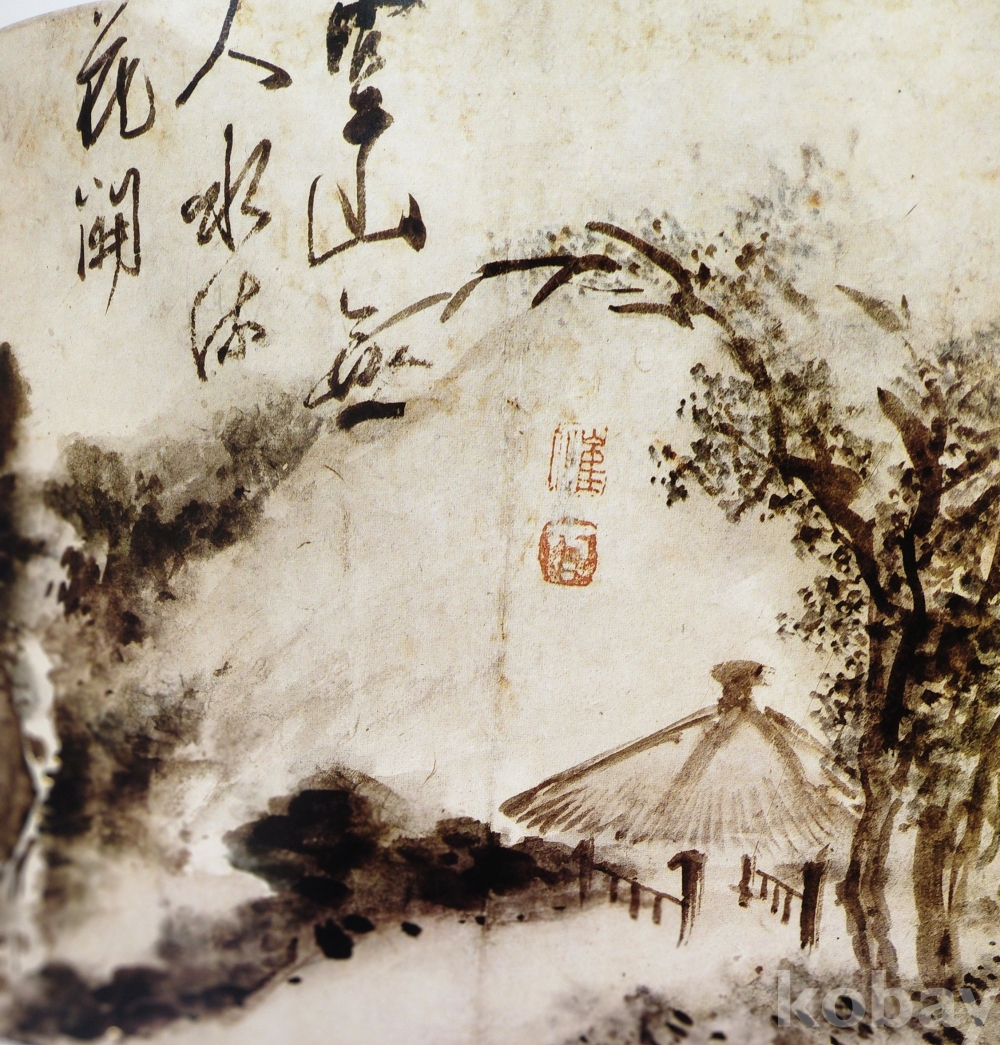 空山無
人水流
花開
kobay